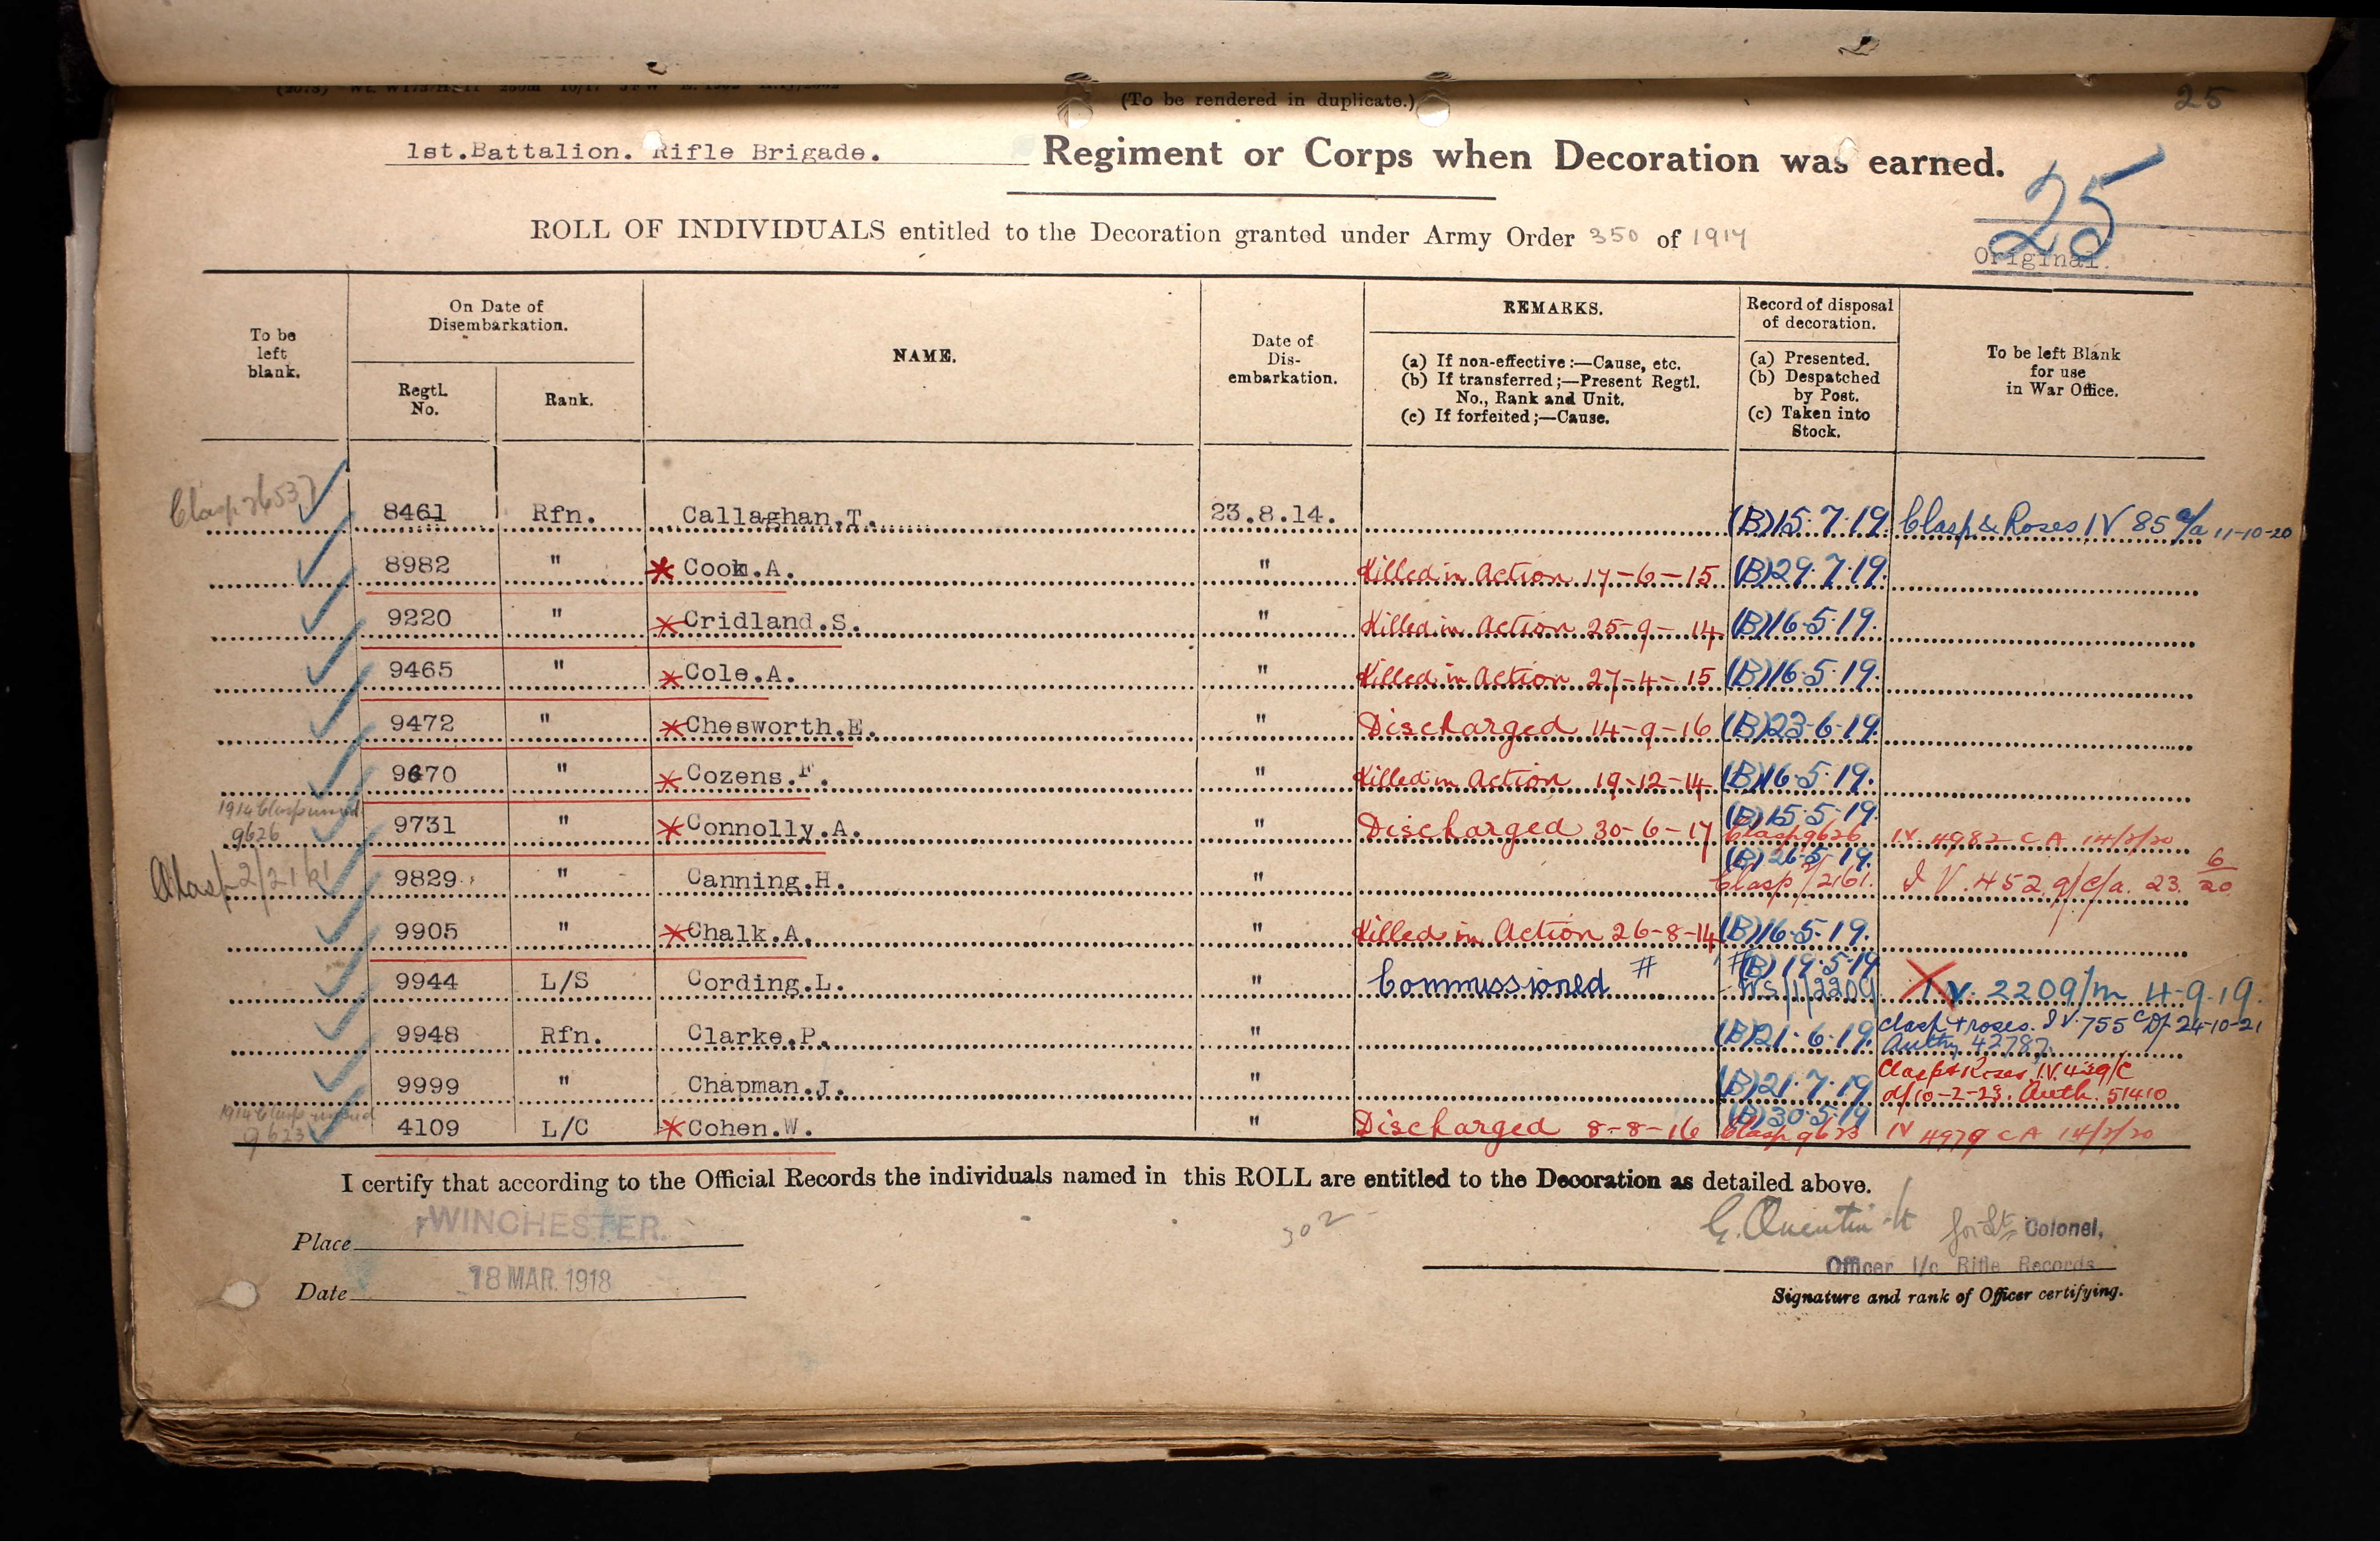 (To be rendered in duplicate.)
25
1st.Battalion. Rifle Brigade. Regiment or Corps when Decoration was earned.
25
ROLL OF INDIVIDUALS entitled to the Decoration granted under Army Order 350 of 1917
Original.
To be left blank.
On Date of Disembarkation.
Regtl. No.
Rank.
NAME.
Date of Dis-embarkation.
REMARKS.
(a) If non-effective:—Cause, etc.
(b) If transferred;—Present Regtl. No., Rank and Unit.
(c) If forfeited;—Cause.
Record of disposal of decoration.
(a) Presented.
(b) Despatched by Post.
(c) Taken into Stock.
To be left Blank for use in War Office.
8461 Rfn. Callaghan.T. 23.8.14. (B) 15.7.19. Clasp & Roses IV 85 11-10-20
8982 " * Cook.A. " Killed in Action 17-6-15 (B) 29.7.19.
9220 " * Cridland.S. " Killed in Action 25-9-14 (B) 16.5.19.
9465 " * Cole.A. " Killed in Action 27-4-15 (B) 16.5.19.
9472 " * Chesworth.E. " Discharged 14-9-16 (B) 23-6-19.
9670 " * Cozens.F. " Killed in Action 19-12-14 (B) 16.5.19.
9626 9731 " * Connolly.A. " Discharged 30-6-17 (B) 15.5.19. Clasp 9626 IV 4982 CA 14/2/20
Clasp 9829 " Canning.H. " (B) 26.5.19. Clasp 2/2161. IV. 452 23. 6/20
9905 " * Chalk.A. " Killed in Action 26-8-14 (B) 16-5-19.
9944 L/S Cording.L. " Commissioned # #(B) 19.5.19 IV. 2209/m 4-9-19.
9948 Rfn. Clarke.P. " (B) 21.6.19. Clasp + roses. IV. 755 24-10-21
Auth 42787.
9999 " Chapman.J. " (B) 21.7.19 Clasp & Roses. IV. 439/C
d/10-2-23. Auth. 51410
9623 4109 L/C * Cohen.W. " Discharged 8-8-16 (B) 30.5.19 Clasp 9623 IV 4979 CA 14/2/20
I certify that according to the Official Records the individuals named in this ROLL are entitled to the Decoration as detailed above.
Place WINCHESTER.
302
G. Quentin Lt for Lt Colonel,
Officer i/c Rifle Records
Date 18 MAR. 1918
Signature and rank of Officer certifying.